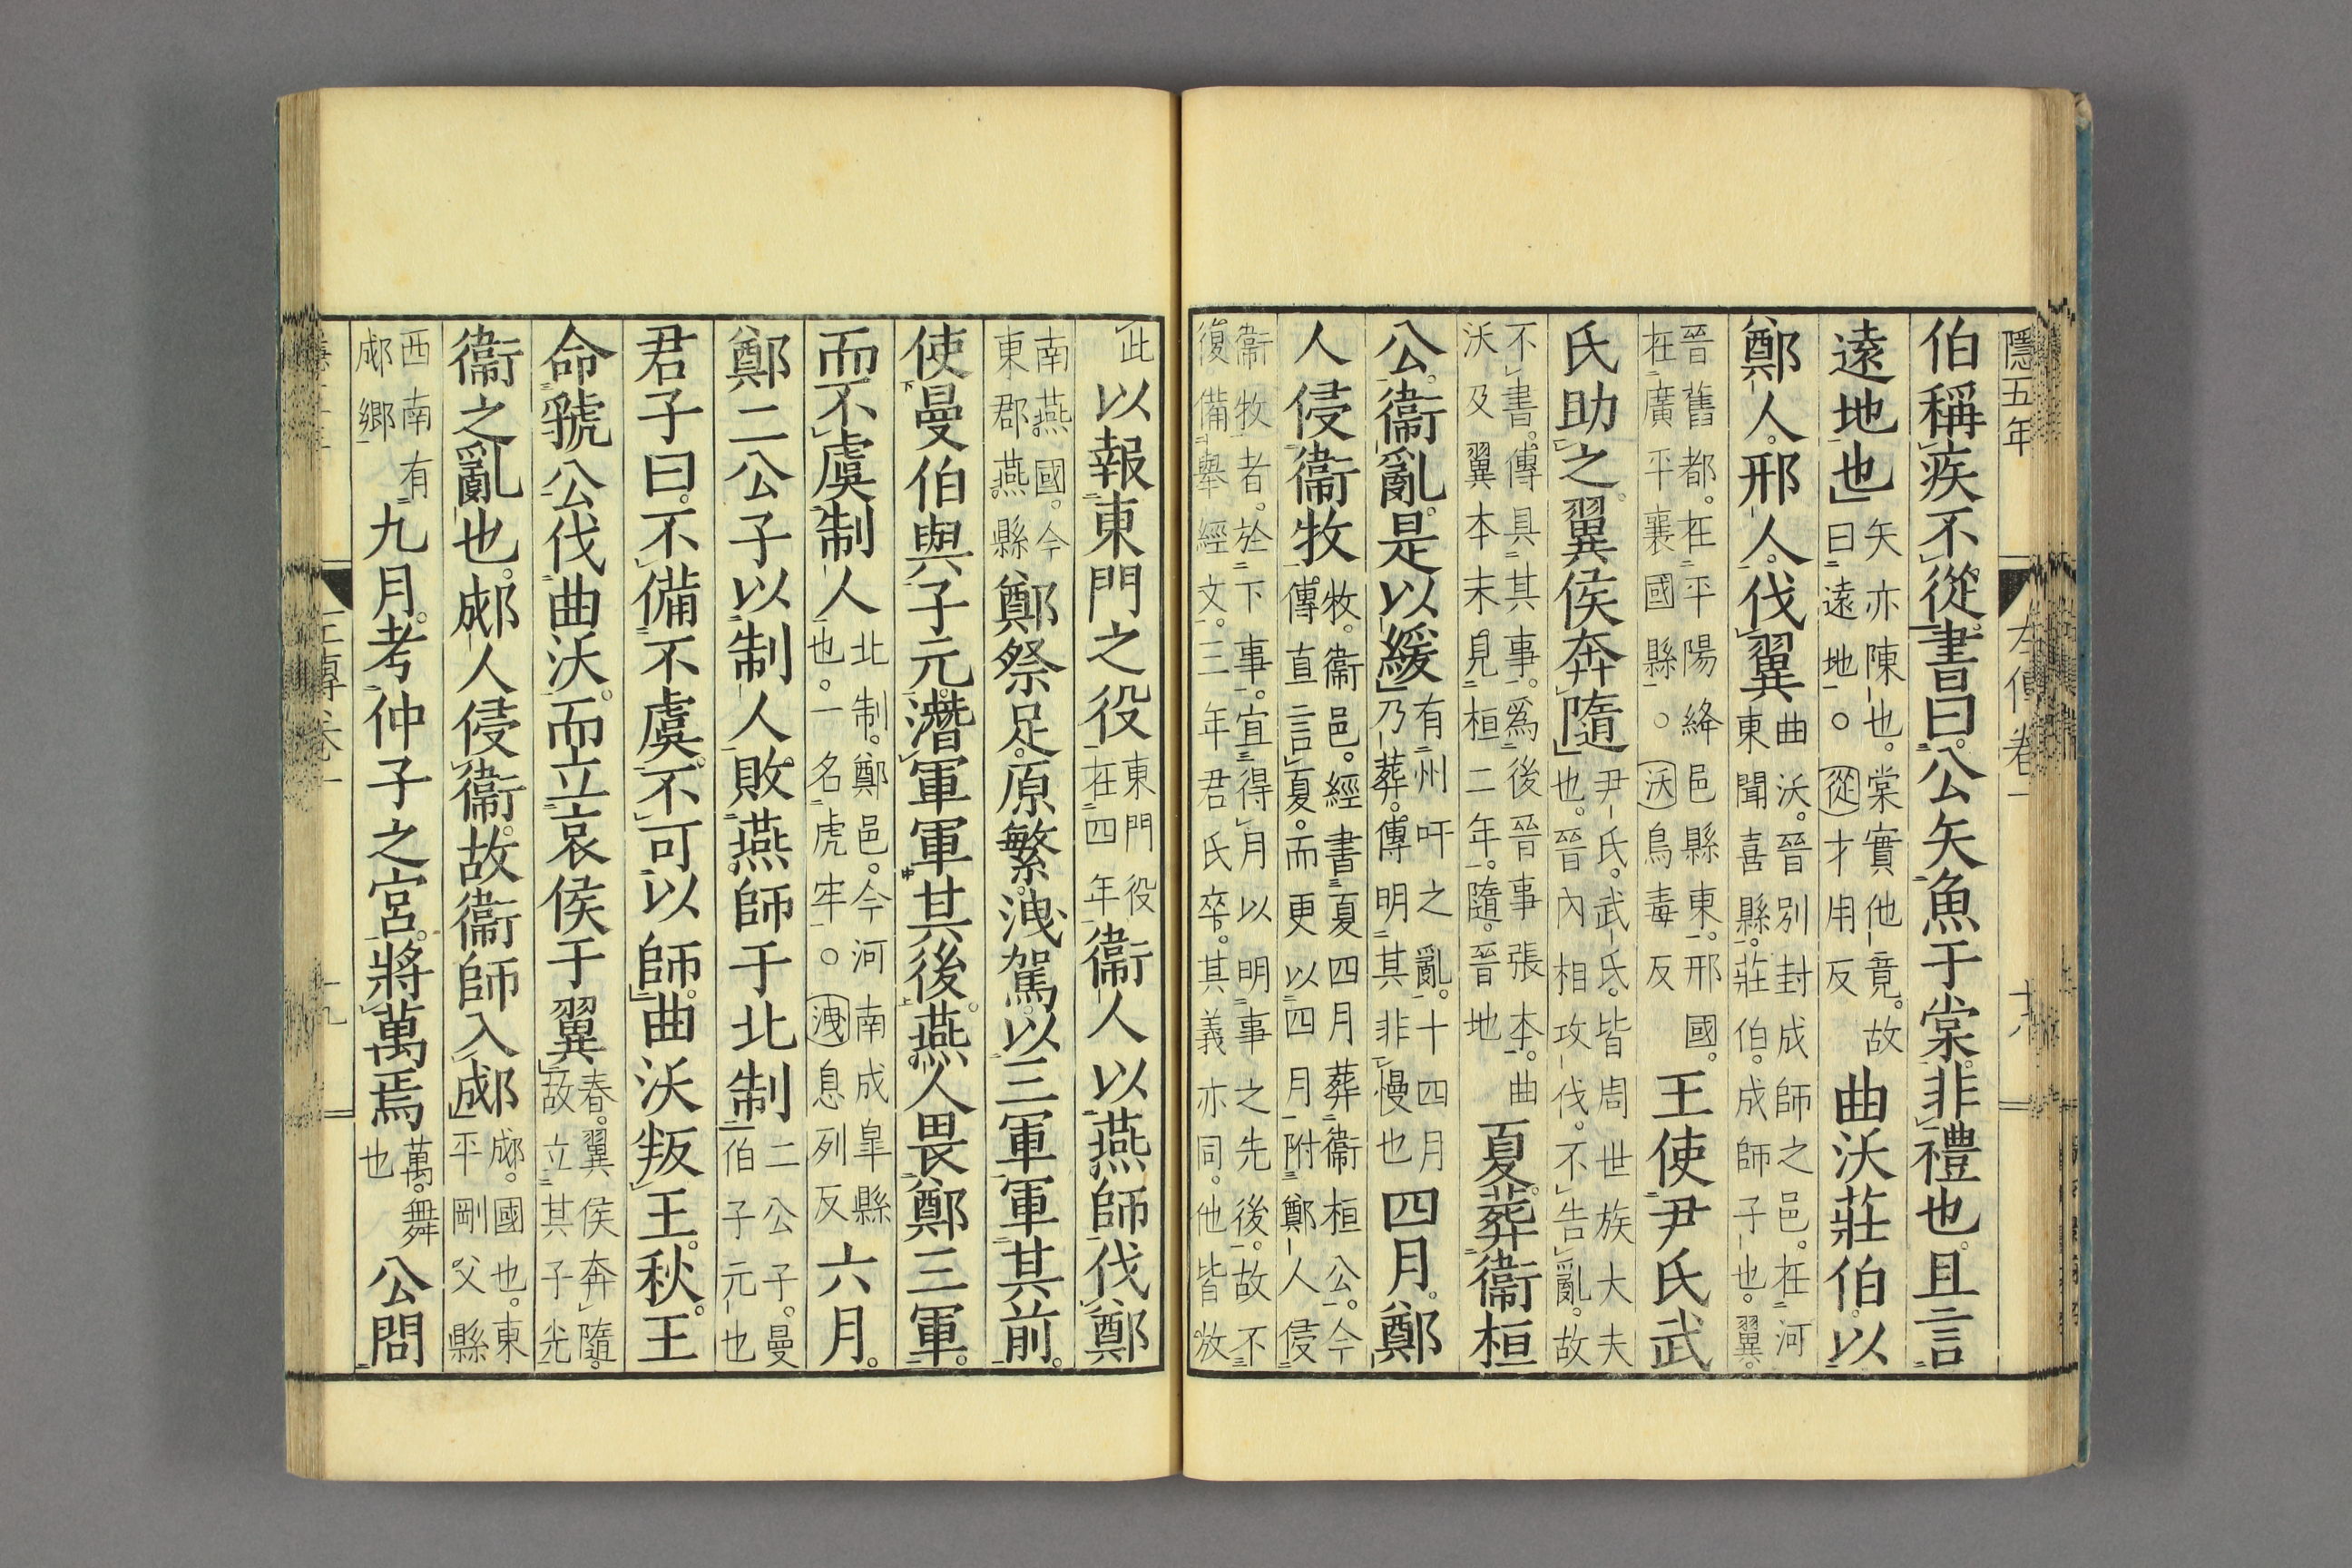 隱五年 左傳卷一 十八
伯稱疾不從書曰公矢魚于棠非禮也且言
遠地也矢亦陳也棠實他竟故曰遠地○從才用反曲沃莊伯以
鄭人邢人伐翼曲沃晉別封成師之邑在河東聞喜縣莊伯成師子也翼
晉舊都在平陽絳邑縣東邢國在廣平襄國縣○沃烏毒反王使尹氏武
氏助之翼侯奔隨尹氏武氏皆周世族大夫也晉內相攻伐不告亂故
不書傳具其事爲後晉事張本曲沃及翼本末見桓二年隨晉地夏葬衞桓
公衞亂是以緩有州吁之亂十四月乃葬傳明其非慢也四月鄭
人侵衞牧牧衞邑經書夏四月葬衞桓公今傳直言夏而更以四月附鄭人侵
衞牧者於下事宜得月以明事之先後故不復備舉經文三年君氏卒其義亦同他皆放
此以報東門之役東門役在四年衞人以燕師伐鄭
南燕國今東郡燕縣鄭祭足原繁洩駕以三軍軍其前
使曼伯與子元潛軍軍其後燕人畏鄭三軍
而不虞制人北制鄭邑今河南成皐縣也一名虎牢○洩息列反六月
鄭二公子以制人敗燕師于北制二公子曼伯子元也
君子曰不備不虞不可以師曲沃叛王秋王
命虢公伐曲沃而立哀侯于翼春翼侯奔隨故立其子光
衞之亂也郕人侵衞故衞師入郕郕國也東平剛父縣
西南有郕鄉九月考仲子之宮將萬焉萬舞也公問